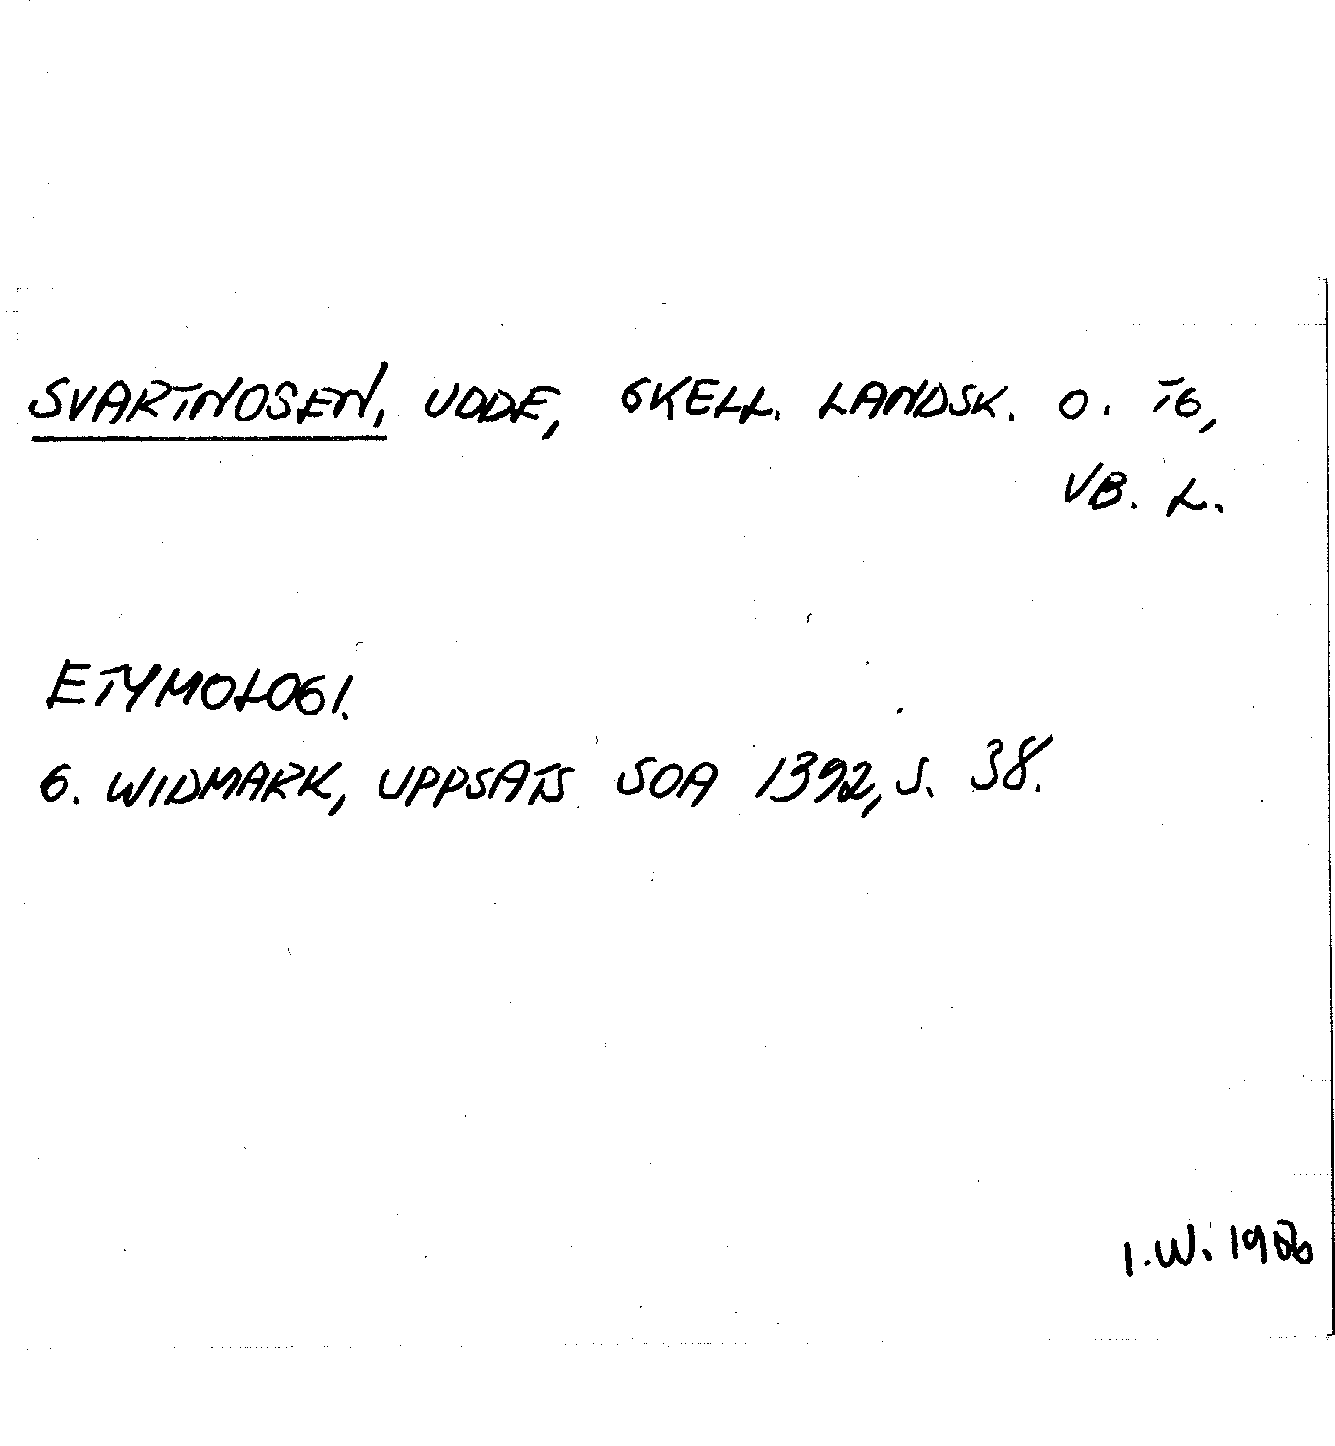 SVARTNOSEN, UDDE, SKELL. LANDSK. O. TG,
VB. L.
ETYMOLOGI.
G. WIDMARK, UPPSATS SOA 1392, S. 38.
I.W. 1986